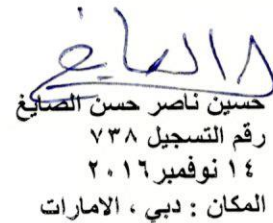 حسين ناصر حسن الصايغ
رقم التسجيل ٧٣٨
١٤ نوفمبر٢٠١٦
المكان : دبي ، الامارات